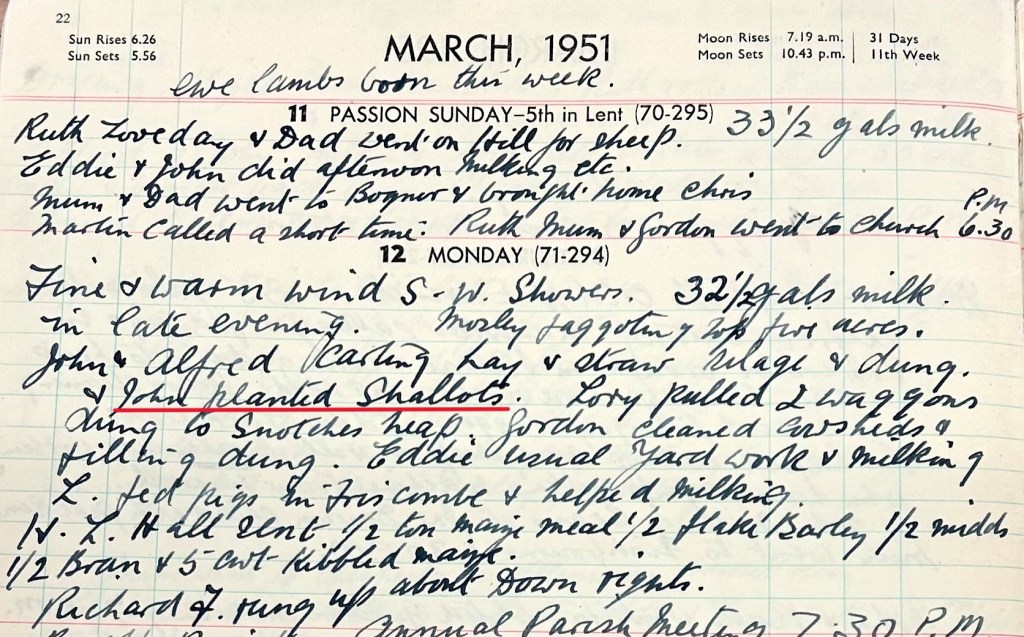 22
Sun Rises 6.26
Sun Sets 5.56
MARCH, 1951
Moon Rises 7.19 a.m. 31 Days
Moon Sets 10.43 p.m. 11th Week
ewe lambs born this week.
11 PASSION SUNDAY–5th in Lent (70-295) 33 1/2 gals milk.
Ruth Loveday & Dad went on Hill for sheep.
Eddie & John did afternoon milking etc.
Mum & Dad went to Bognor & brought home Chris
Martin called a short time. Ruth Mum & Gordon went to church 6.30 P.M
12 MONDAY (71-294)
Fine & warm wind S-W. Showers. 32 1/2 gals milk.
in late evening. Mosley faggoting top five acres.
John & Alfred Carting hay & straw silage & dung.
& John planted Shallots. Lory pulled 2 waggons
dung to Snotches heap Gordon cleaned cowsheds &
filling dung. Eddie usual Yard work & milking
L. fed pigs in Friscombe & helped milking.
H. L. Hall sent 1/2 ton maize meal 1/2 flake Barley 1/2 midds
1/2 Bran & 5 cwt Kibbled maize.
Richard F. rung up about Down rights.
Annual Parish Meeting 7.30 P.M